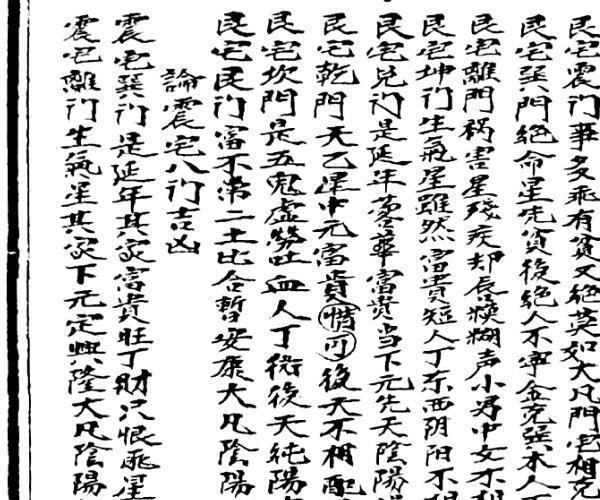 艮宅震门事多乖有貧又絶莫如大凡門宅相克
艮宅巽門絶命星先貧後絶人不寧金克巽木人
艮宅離門祸害星残疾却長煥糊声小男中女木
艮宅坤门生氣星雖然富貴短人丁东西阴阳不
艮宅兌门是延年荣華富贵当下元先天陰陽
艮宅乾門天乙星中元富貴惜可後天不相配
艮宅坎門是五鬼虚勞吐血人丁衍後天純陽
艮宅艮门富不常二土比合暫安康大凡陰陽
論震宅八门吉凶
震宅巽门是延年其家富貴旺丁財只恨乖星
震宅離门生氣星其家下元定興隆大凡陰陽